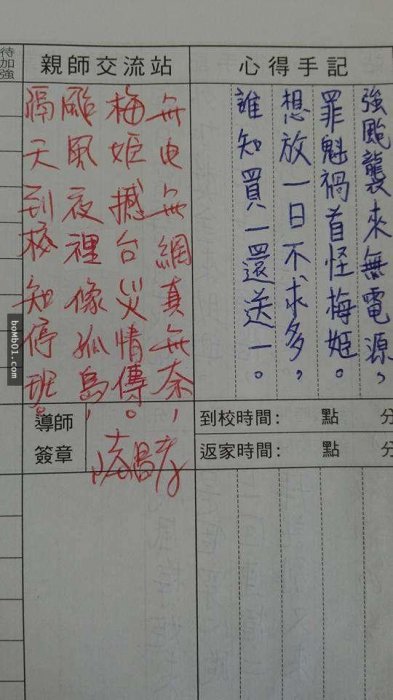 心得手記
強颱襲來無電源，
罪魁禍首怪梅姬。
想放一日不求多，
誰知買一還送一。
親師交流站
無电無網真無奈，
梅姬撼台災情傳。
颱風夜裡像孤島，
隔天到校知停班。
待加強
到校時間： 點 分
返家時間： 點
導師
簽章
bomb01.com